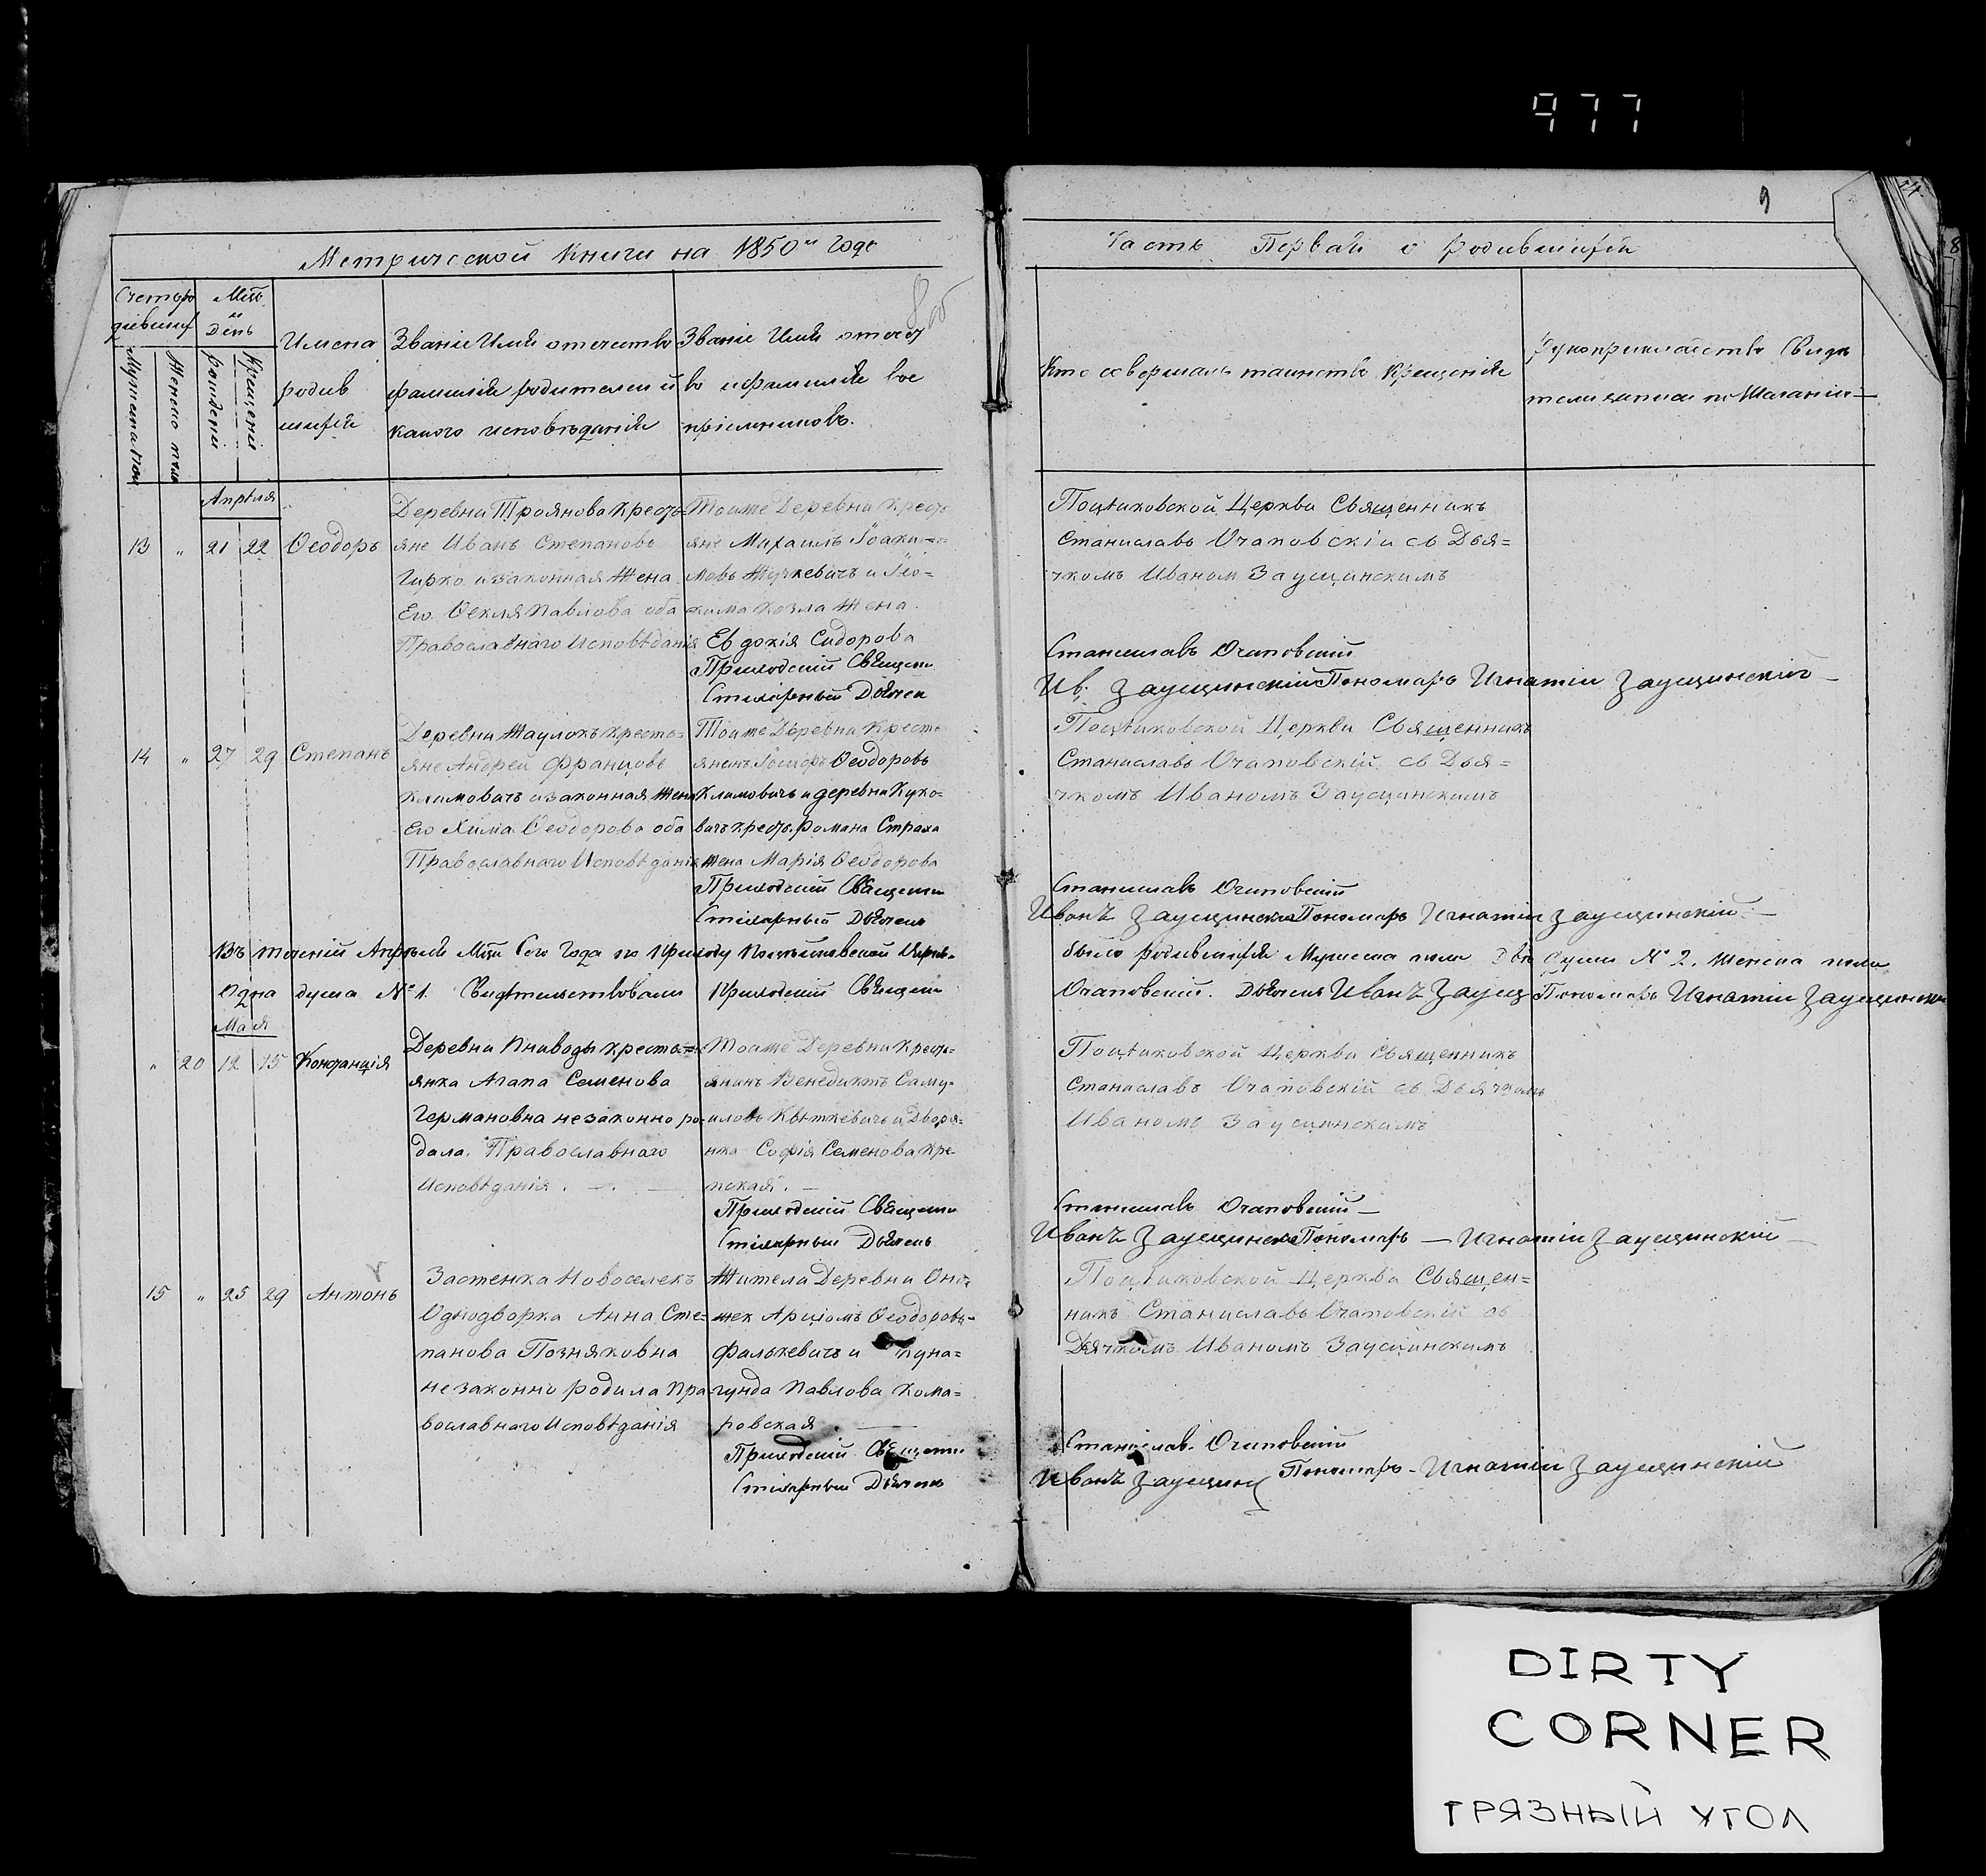 977
9
Метрической Книги на 1850й Годъ
Часть Первая о родившихся
Мѣць
и
День
Имена
родив
шихся
Званіе Имя отечество
фамилія родителей и
какого исповѣданія
Званіе Имя отечест
во и фамилія вос
пріемниковъ.
Кто совершалъ таинство Крещенія
Рукоприкладство Свидѣ
телей записи по Желанію
Мужеска пола
Женска пола
Рожденія
Крещенія
Апрѣля
13 " 21 22 Ѳеодоръ
Деревни Троянова Кресть-
яне Иванъ Степановъ
Гирко и законная Жена
Его Ѳекля Павлова оба
Православнаго Исповѣданія
Тоиже Деревни Кресть
яне Михаилъ Іоаки=
мовъ Жучкевичъ и
кима Козла Жена
Евдокія Сидорова
Приходскій Священ
Стихарный Дьячек
Поцѣиковской Церкви Священникъ
Станиславъ Очаповскіи съ Дья=
чкомъ Иваном Заусцинскимъ
Станиславъ Очаповскій
Ив. Заусцинскій Пономарь Игнатіи Заусцинскій
14 " 27 29 Степанъ
Деревни Жаулокъ Кресть=
яне Андрей Францовъ
Климовичъ и законная Жена
Его Хима Ѳеодорова оба
Православнаго Исповѣданія
Тоиже Деревни Кресть
янинъ Іосифъ Ѳеодоровъ
Климовичъ и деревни Куко=
вичъ крестъ. Романа Страха
жена Марія Ѳеодорова
Приходскій Священ
Стихарный Дьячек
Поцѣиковской Церкви Священникъ
Станиславъ Очаповскій съ Дья=
чкомъ Иваномъ Заусцинскимъ
Станиславъ Очаповскій
Иванъ Заусцински Пономарь Игнатіи Заусцинскій
Въ теченіи Апрѣля Мца Сего Года по Приходу Поцѣиковской Церкв.
было родившихся Мужеска пола двѣ Души № 2. Женска пола
Одна душа № 1. Свидѣтельствовали Приходскій Священ
Очаповскій. Дьячекъ Иванъ Заусц Пономарь Игнатіи Заусцински
Мая
" 20 12 15 Констанція
Деревни Пниводы Кресть=
янка Агапа Семенова
Германовна незаконно ро-
дила. Православнаго
Исповѣданія.
Тоиже Деревни Кресть=
янинъ Венедиктъ Саму-
иловъ Квѣткевичъ и Дворя=
нка Софія Семенова Кре-
пская.
Приходскій Священ
Стихарный Дьячекъ
Поцѣиковской Церкви Священникъ
Станиславъ Очаповскій съ Дьячкомъ
Иваномъ Заусцинскимъ
Станиславъ Очаповскій
Иванъ Заусцински Пономарь Игнатіи Заусцинскій
15 " 25 29 Антонъ
Застенка Новоселекъ
Однодворка Анна Сте=
панова Позняковна
незаконно родила Пра-
вославнаго Исповѣданія
Жители Деревни Оно=
шек Арціомъ Ѳеодоровъ
Фалькевичъ и
гунда Павлова Кома=
ровская
Приходскій Священ
Стихарный Дьячекъ
Поцѣиковской Церкви Священ=
никъ Станиславъ Очаповскій съ
Дьячкомъ Иваномъ Заусцинскимъ
Станислав. Очаповскій
Иванъ Заусцин Пономарь Игнатіи Заусцинскій
DIRTY
CORNER
ГРЯЗНЫЙ УГОЛ